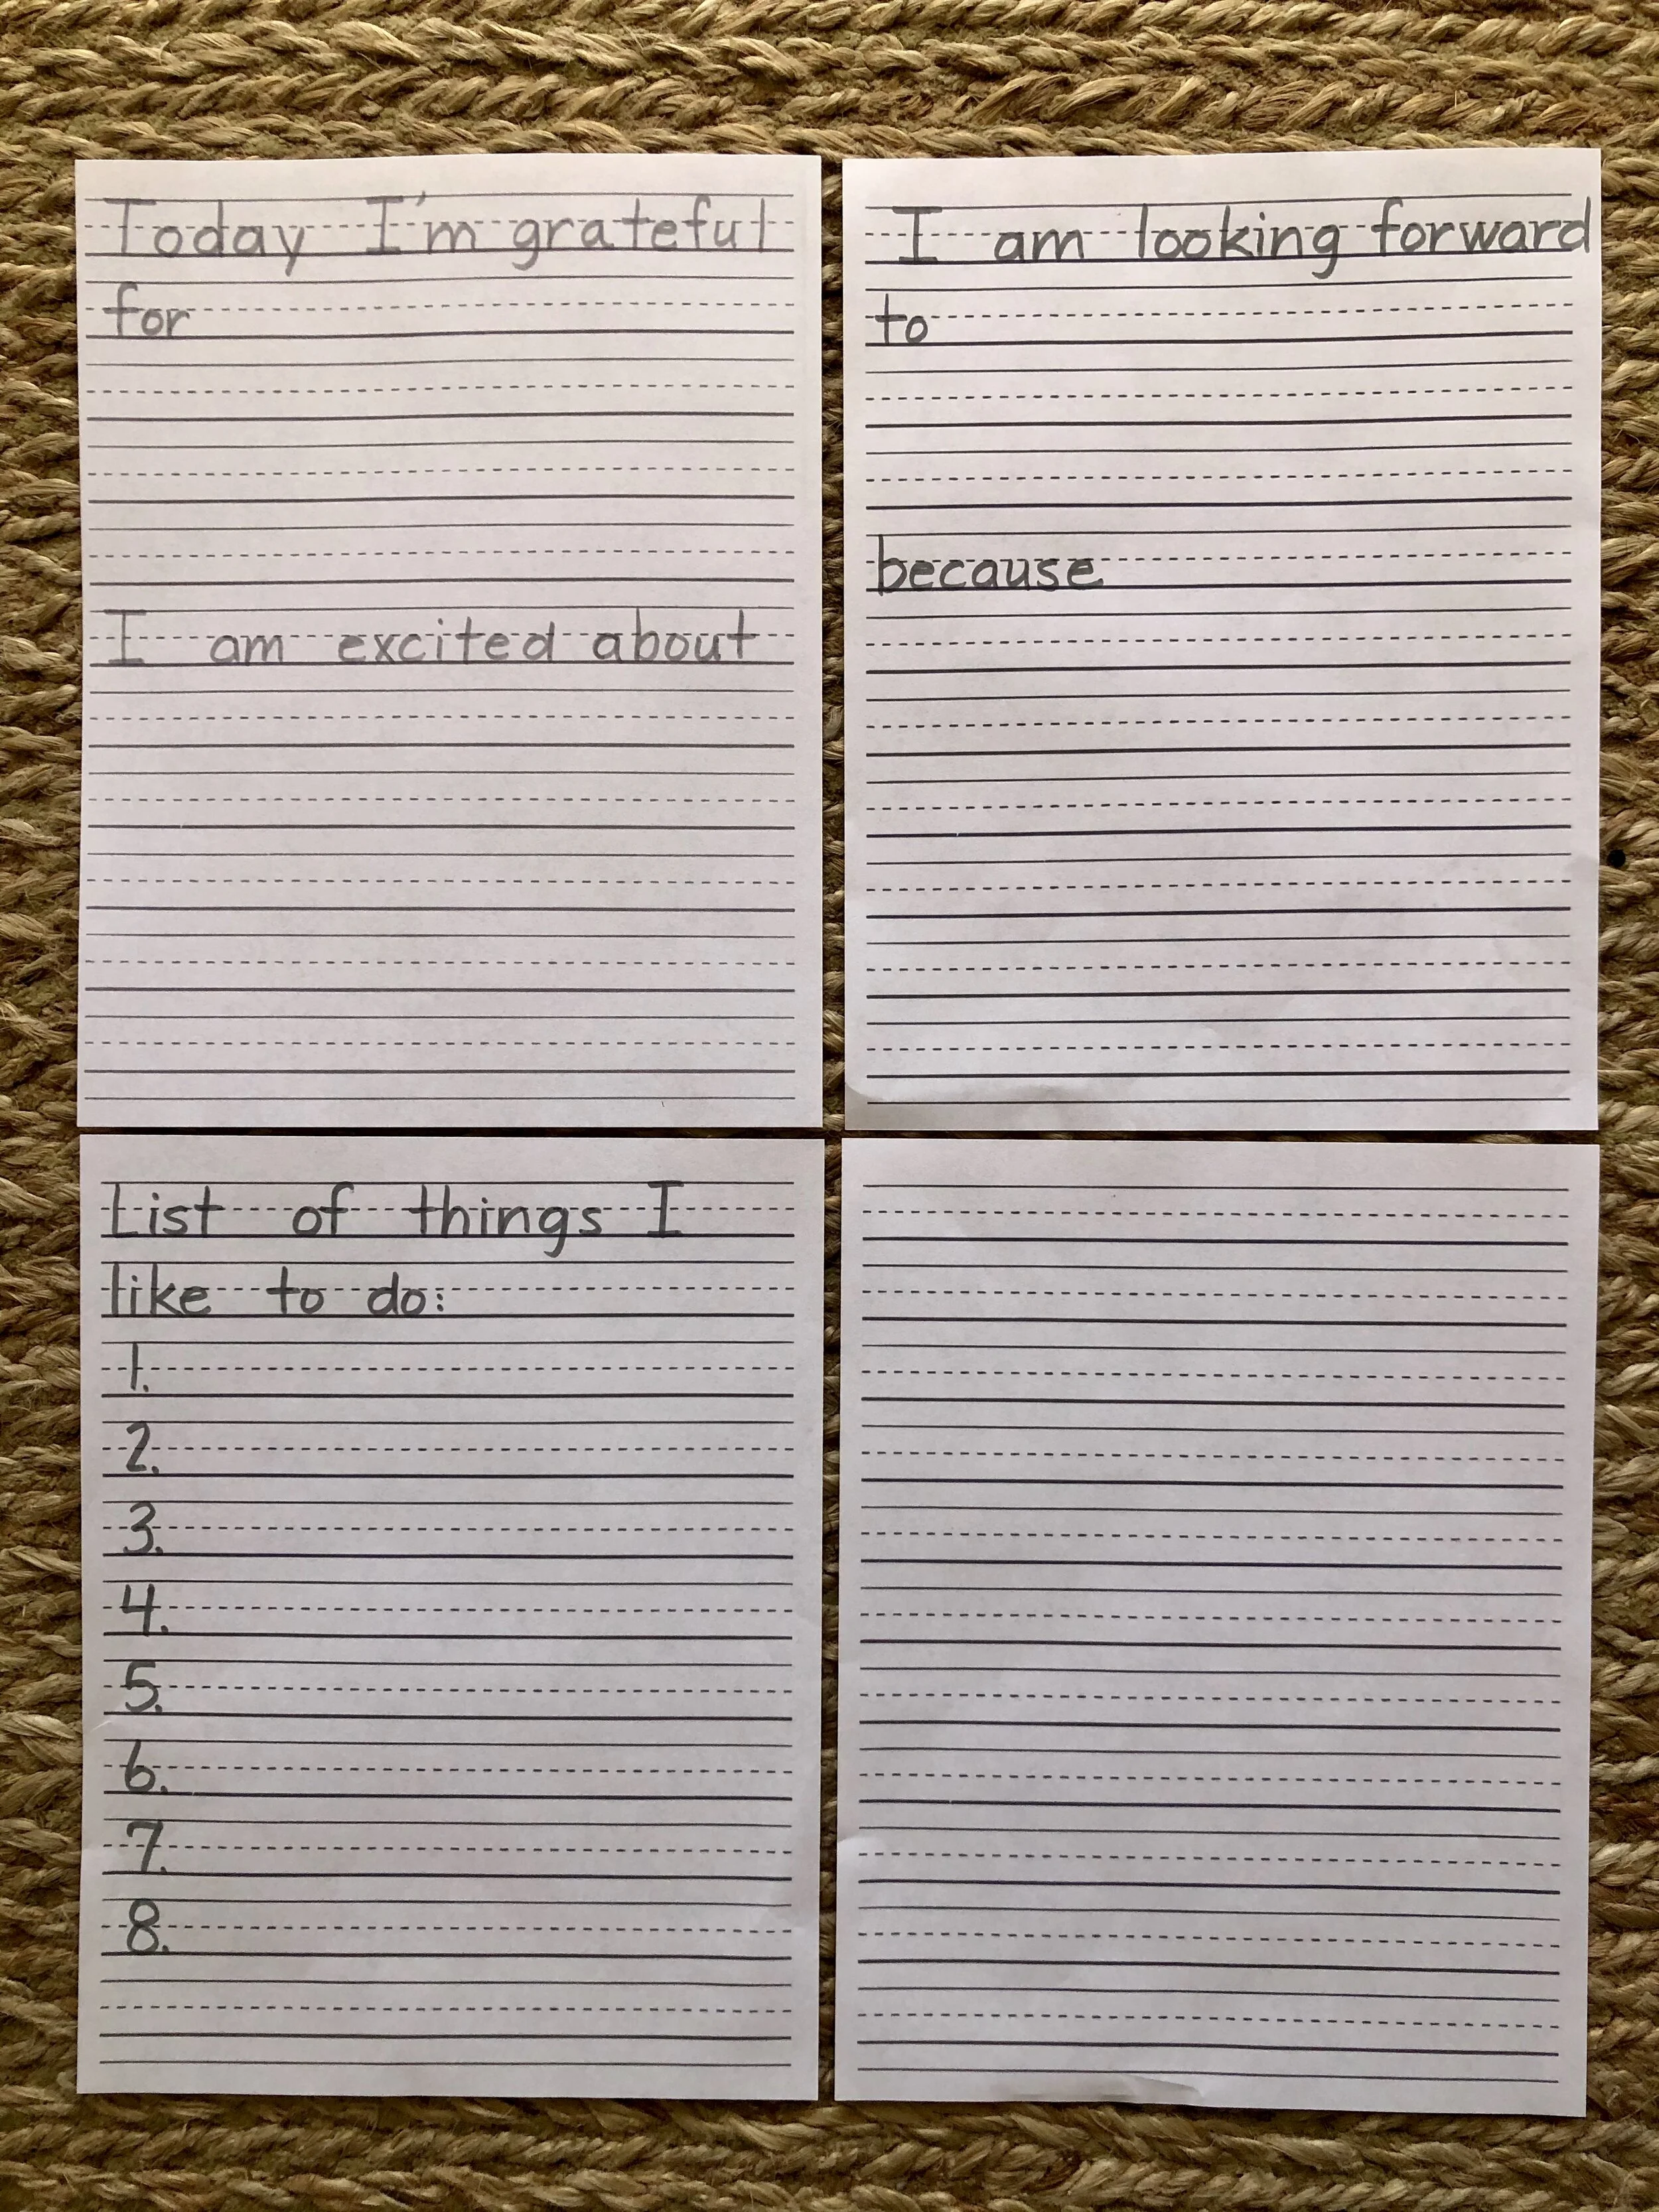 Today I'm grateful
for
I am excited about
I am looking forward
to
because
List of things I
like to do:
1.
2.
3.
4.
5.
6.
7.
8.